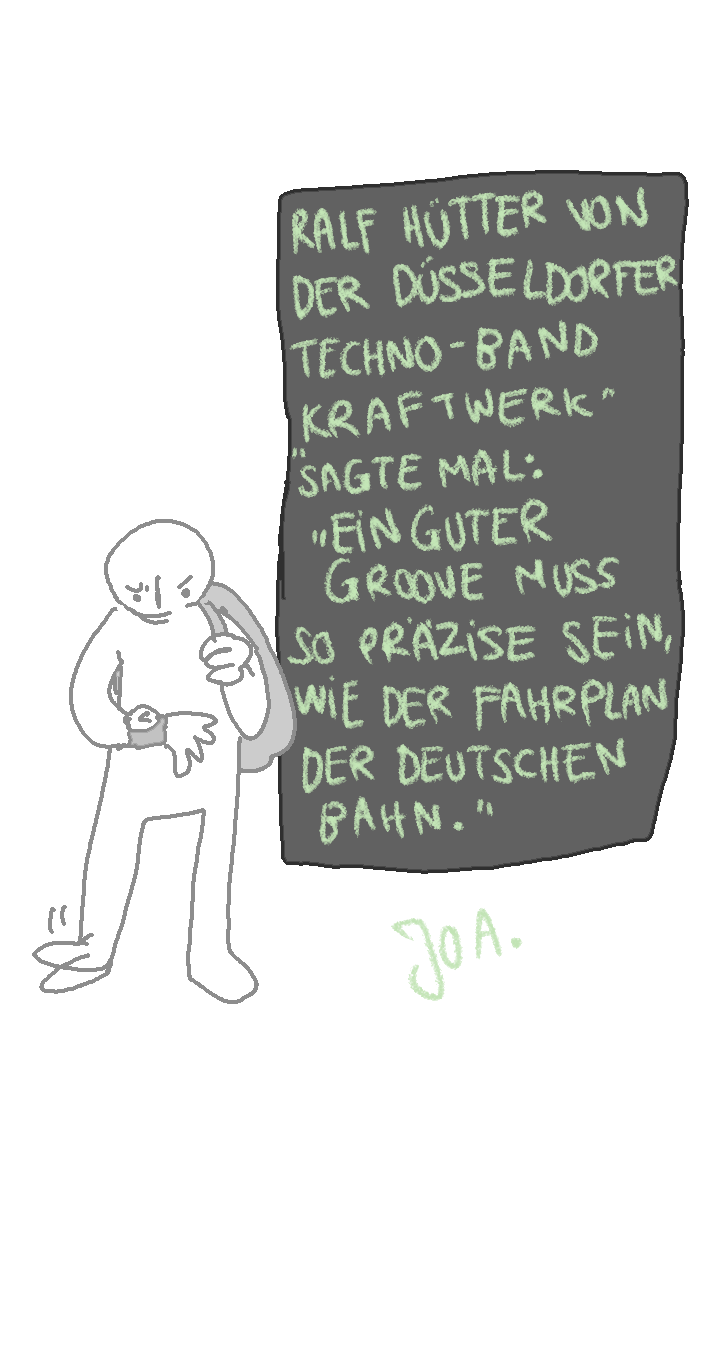 RALF HÜTTER VON
DER DÜSSELDORFER
TECHNO-BAND
"KRAFTWERK"
SAGTE MAL:
"EIN GUTER
GROOVE MUSS
SO PRÄZISE SEIN,
WIE DER FAHRPLAN
DER DEUTSCHEN
BAHN."
JOA.